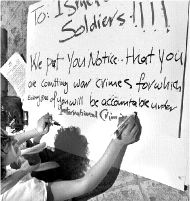 To: Israeli
Soldiers!!!!
We put you Notice. that you
are comiting war crimes for which
everyone of you will be accountable under
International Crimin